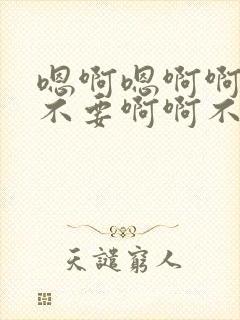 嗯啊嗯啊啊
不要啊啊不
天譴窮人